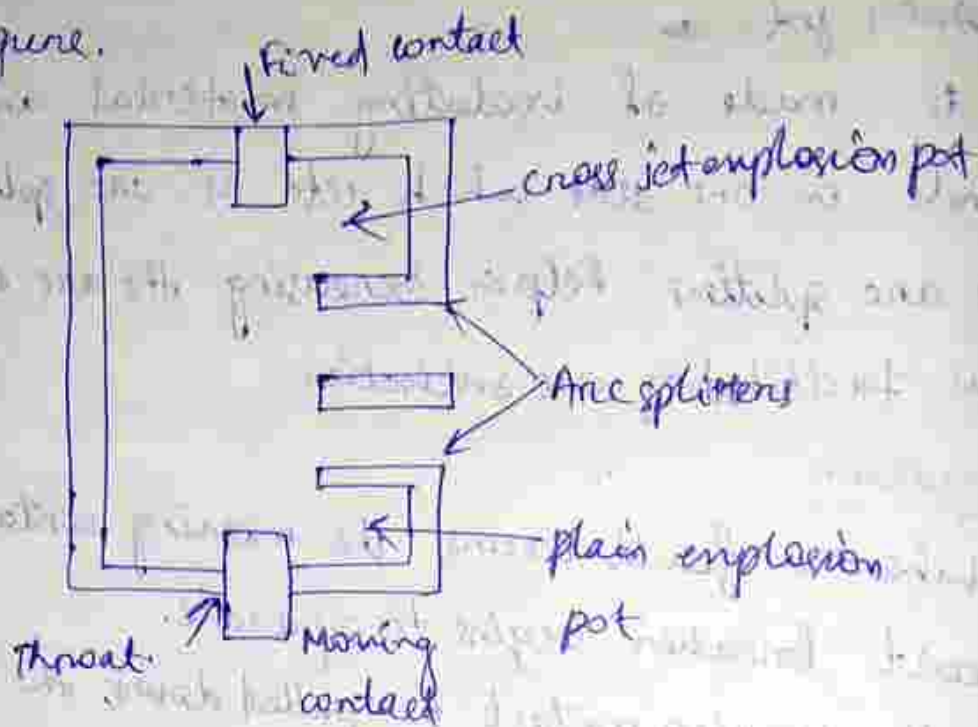 gure.
Fixed contact
cross jet explosion pot
Arc splitters
plain explosion
pot
Throat.
Moving
contact